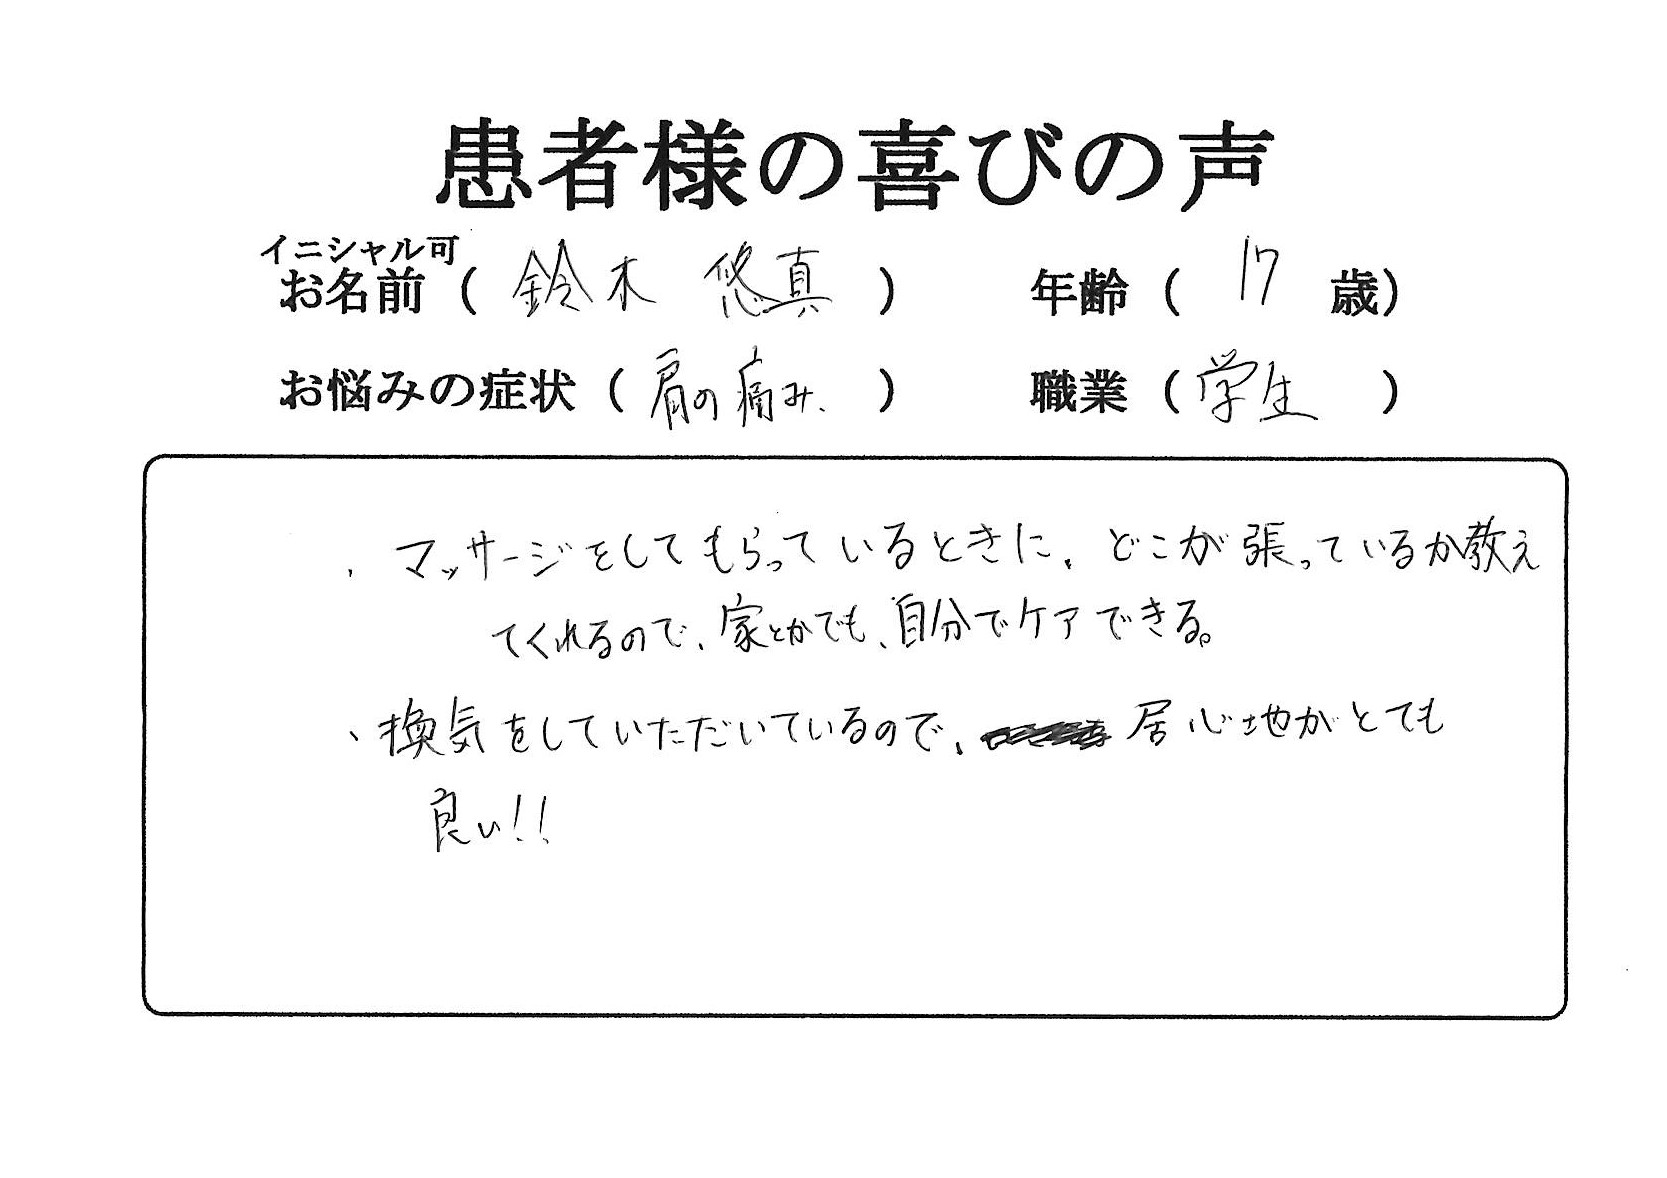 患者様の喜びの声
イニシャル可
お名前（ 鈴木 悠真 ） 年齢（ 17 歳）
お悩みの症状（ 肩の痛み、 ） 職業（ 学生 ）
・マッサージをしてもらっているときに、どこが張っているか教え
てくれるので、家とかでも、自分でケアできる。
・換気をしていただいているので、居心地がとても
良い!!